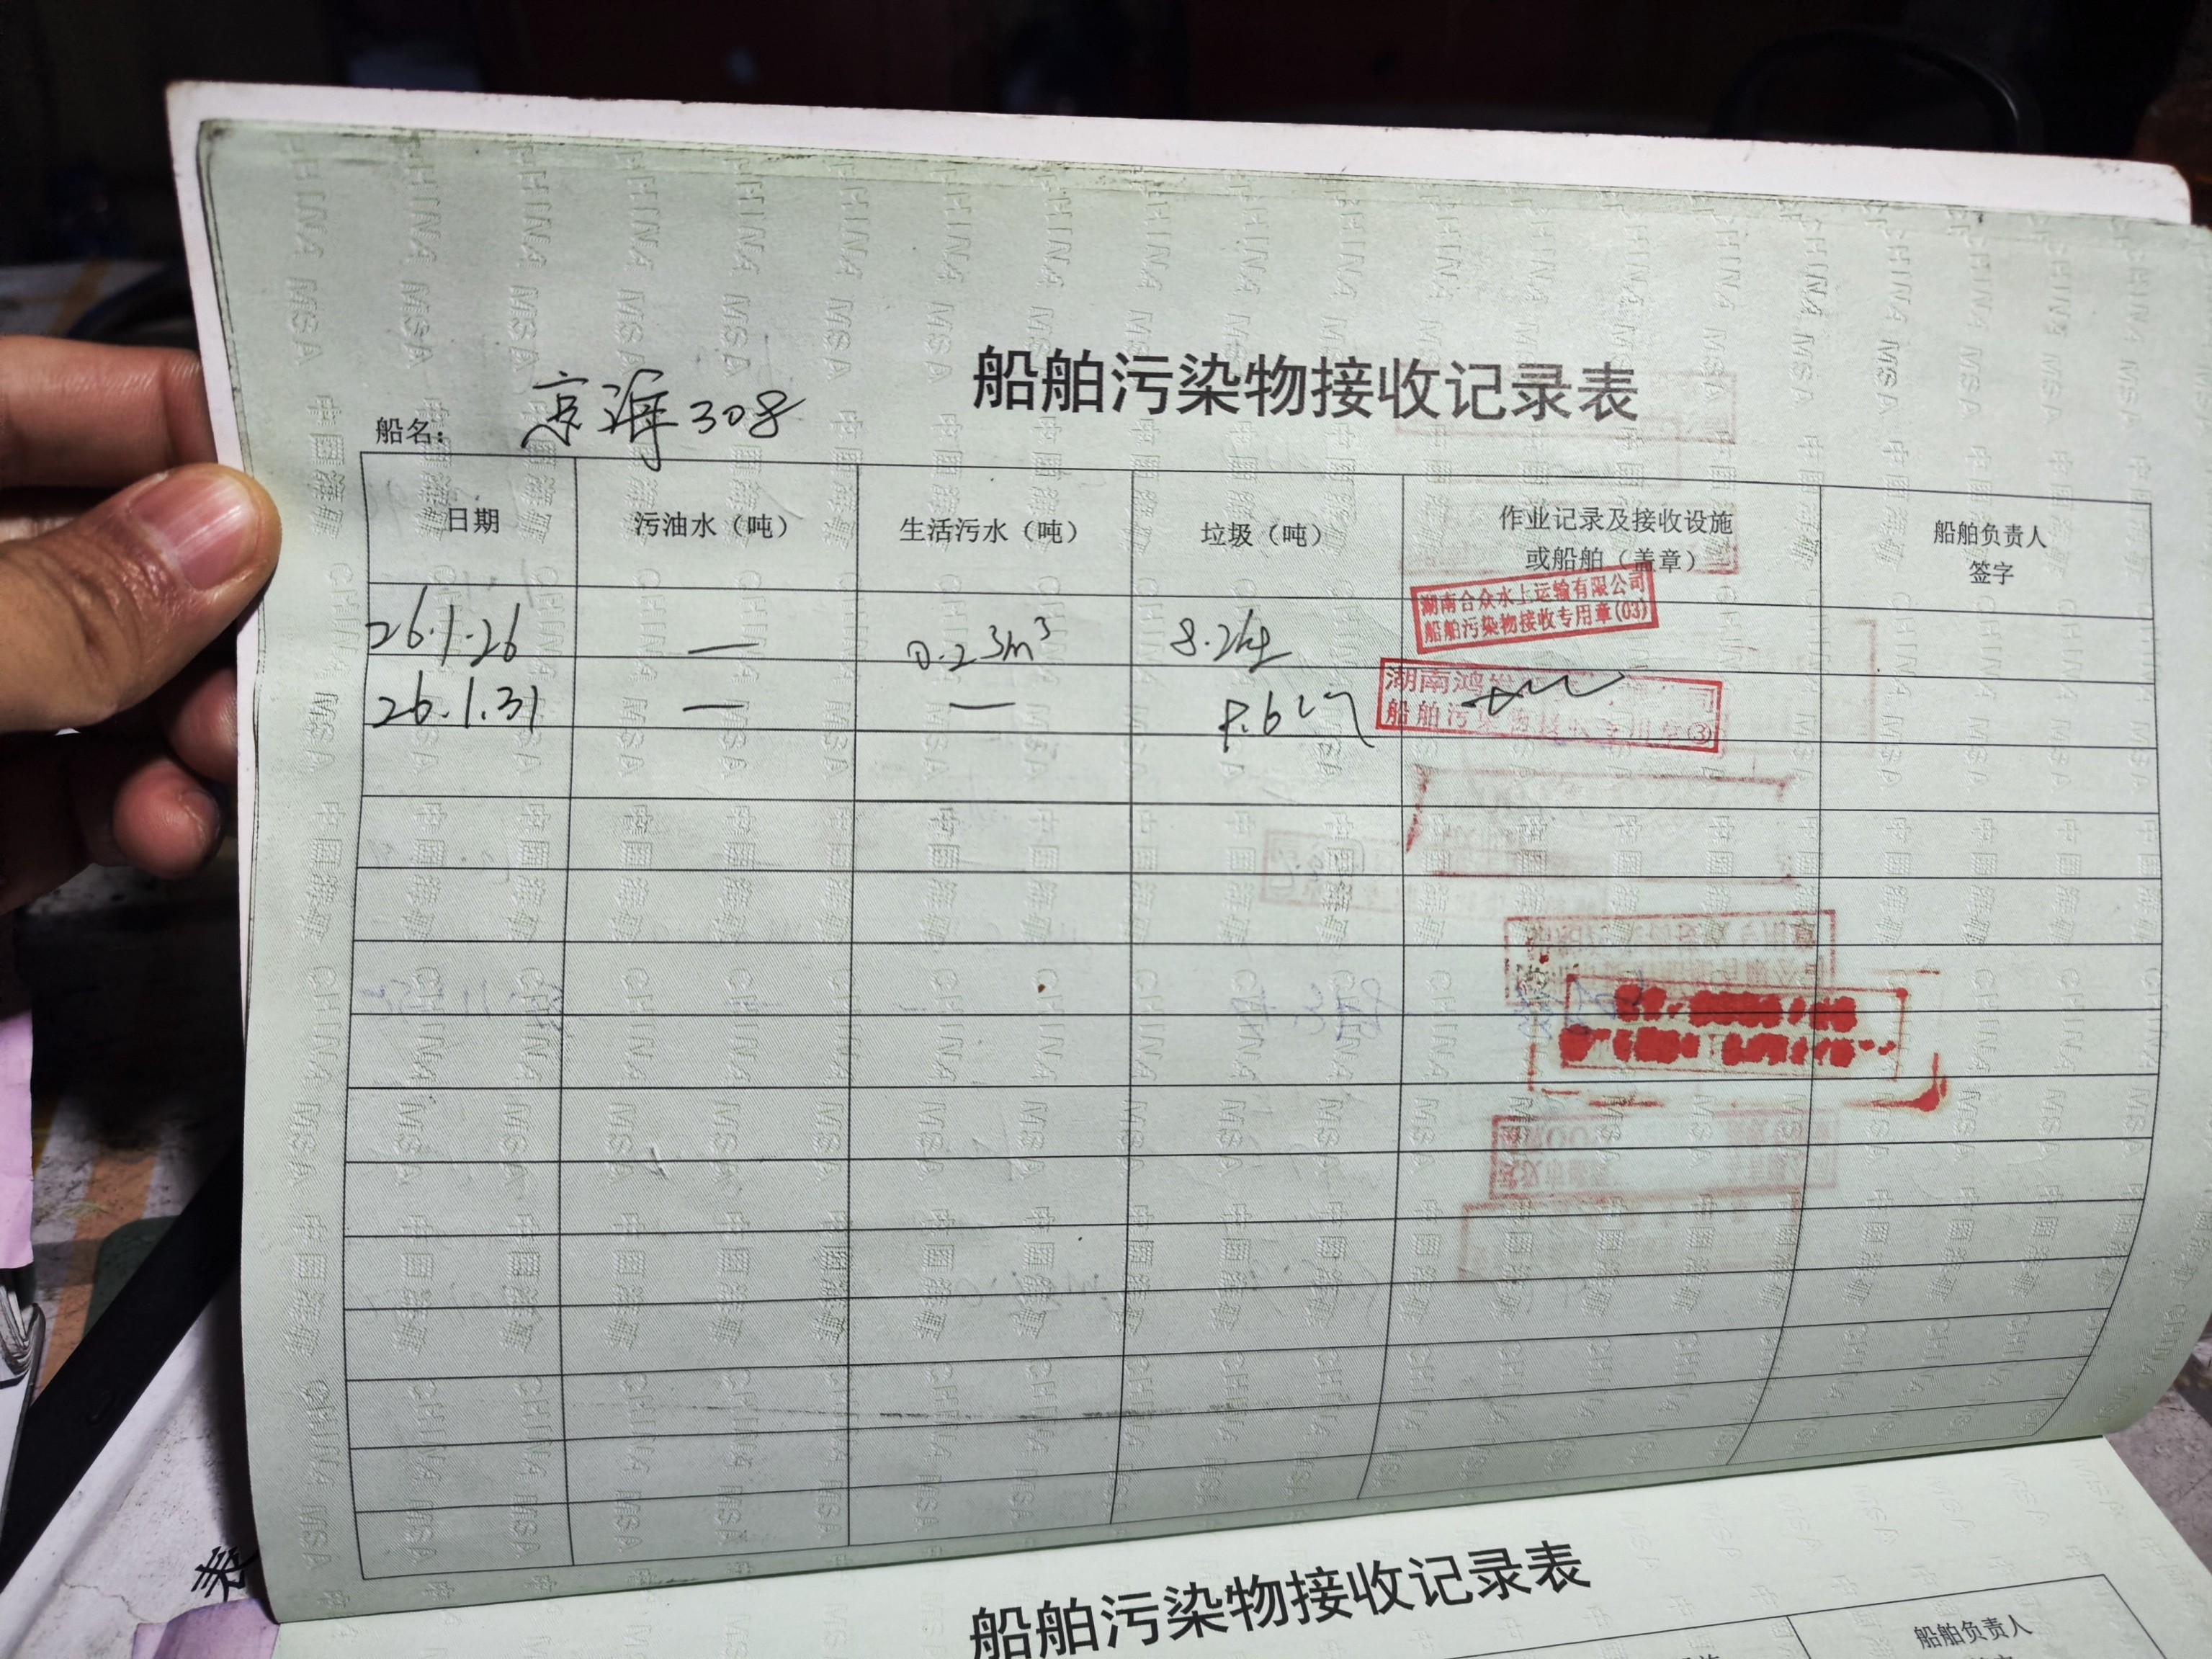 船舶污染物接收记录表
船名: 京海308
日期 污油水（吨） 生活污水（吨） 垃圾（吨） 作业记录及接收设施或船舶（盖章） 船舶负责人签字
26.1.26 — 0.23m³ 8.2kg 湖南合众水上运输有限公司 船舶污染物接收专用章(03)
26.1.31 — — 8.6 湖南鸿 船舶污染物接收专用章③
船舶污染物接收记录表
船舶负责人
表
CHINA MSA 中国海事